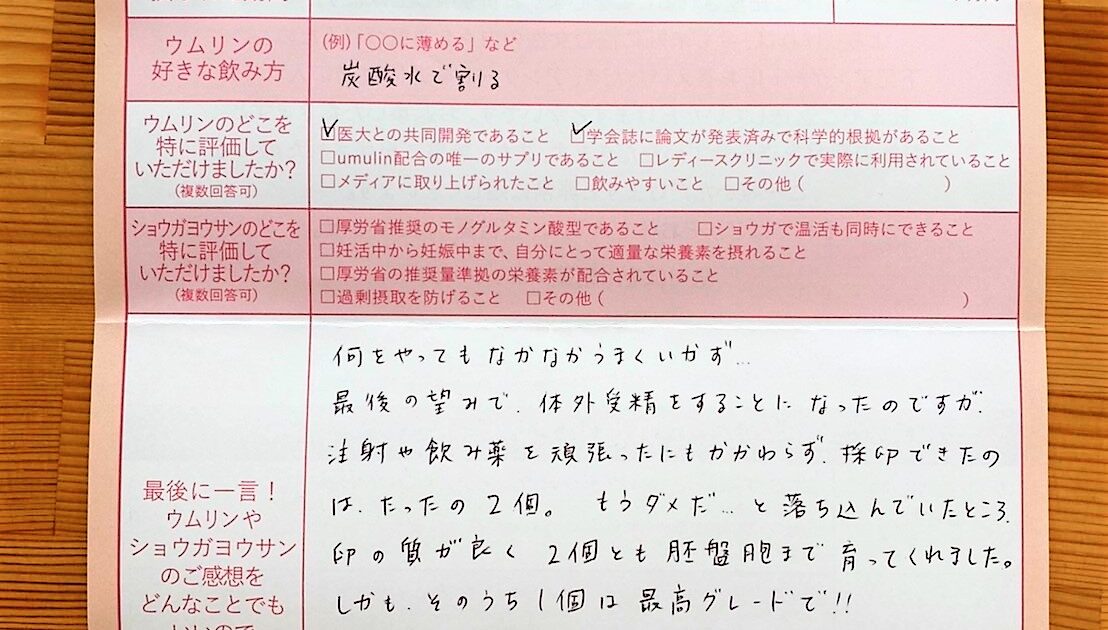 ウムリンの
好きな飲み方
(例)「〇〇に薄める」など
炭酸水で割る
ウムリンのどこを
特に評価して
いただけましたか?
(複数回答可)
☑医大との共同開発であること ☑学会誌に論文が発表済みで科学的根拠があること
□umulin配合の唯一のサプリであること □レディースクリニックで実際に利用されていること
□メディアに取り上げられたこと □飲みやすいこと □その他( )
ショウガヨウサンのどこを
特に評価して
いただけましたか?
(複数回答可)
□厚労省推奨のモノグルタミン酸型であること □ショウガで温活も同時にできること
□妊活中から妊娠中まで、自分にとって適量な栄養素を摂れること
□厚労省の推奨量準拠の栄養素が配合されていること
□過剰摂取を防げること □その他( )
最後に一言!
ウムリンや
ショウガヨウサン
のご感想を
どんなことでも
何をやってもなかなかうまくいかず…
最後の望みで、体外受精をすることになったのですが、
注射や飲み薬を頑張ったにもかかわらず、採卵できたの
は、たったの2個。 もうダメだ…と落ち込んでいたところ、
卵の質が良く 2個とも胚盤胞まで育ってくれました。
しかも、そのうち1個は最高グレードで!!